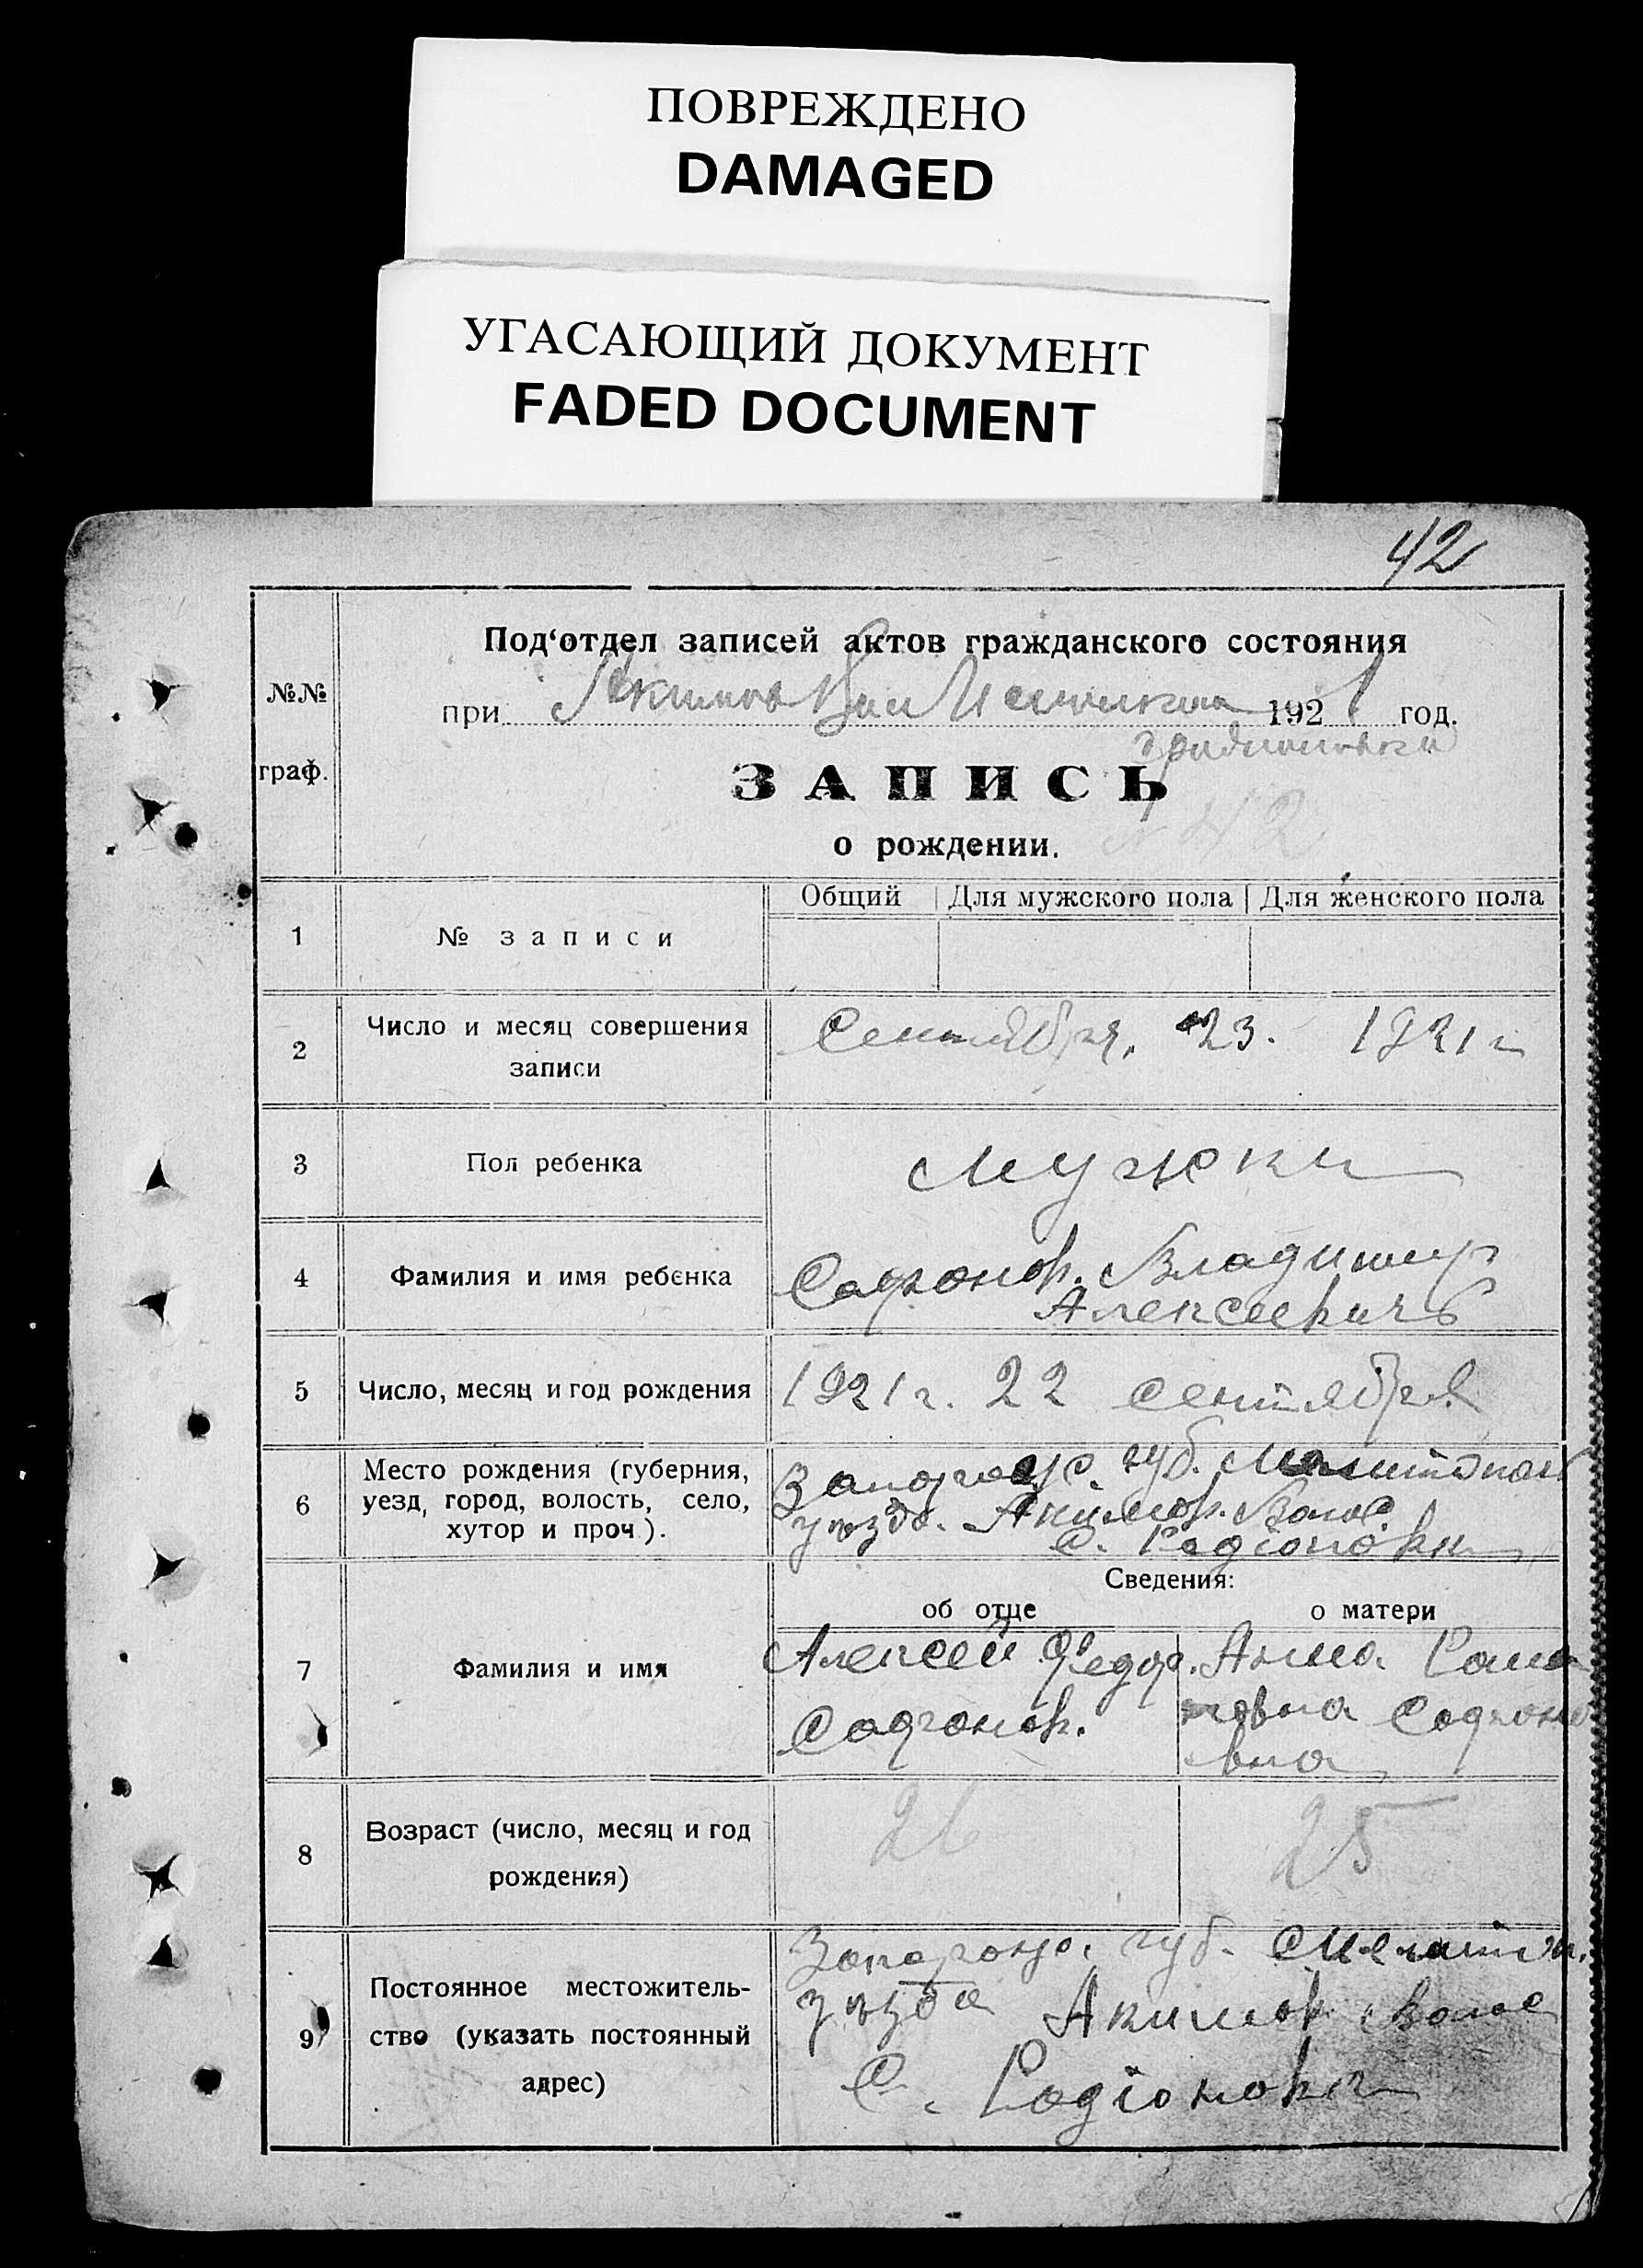 ПОВРЕЖДЕНО
DAMAGED
УГАСАЮЩИЙ ДОКУМЕНТ
FADED DOCUMENT
42
№№ граф.
Под‘отдел записей актов гражданского состояния
при 1921 год.
ЗАПИСЬ
о рождении.
42
Общий Для мужского пола Для женского пола
1 № записи
2 Число и месяц совершения записи
Сентября. 23. 1921 г
3 Пол ребенка
Мужки
4 Фамилия и имя ребенка
Софронов. Владимир
Алексеевичъ
5 Число, месяц и год рождения 1921 г. 22 сентября
6 Место рождения (губерния,
уезд, город, волость, село,
хутор и проч.).
губ.
уъзда. Акимов. Волос
с. Родіоновки
Сведения:
об отце о матери
7 Фамилия и имя
Алексей Федор.
Софронов.
Анна
8 Возраст (число, месяц и год
рождения)
26 25
9 Постоянное местожитель-
ство (указать постоянный
адрес)
губ. Мелитоп.
уъзда Акимов волос
С. Родіоновки